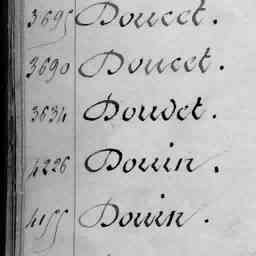 3695 Doucet.
3690 Doucet.
3634 Doudet.
4226 Douin.
4155 Douin.